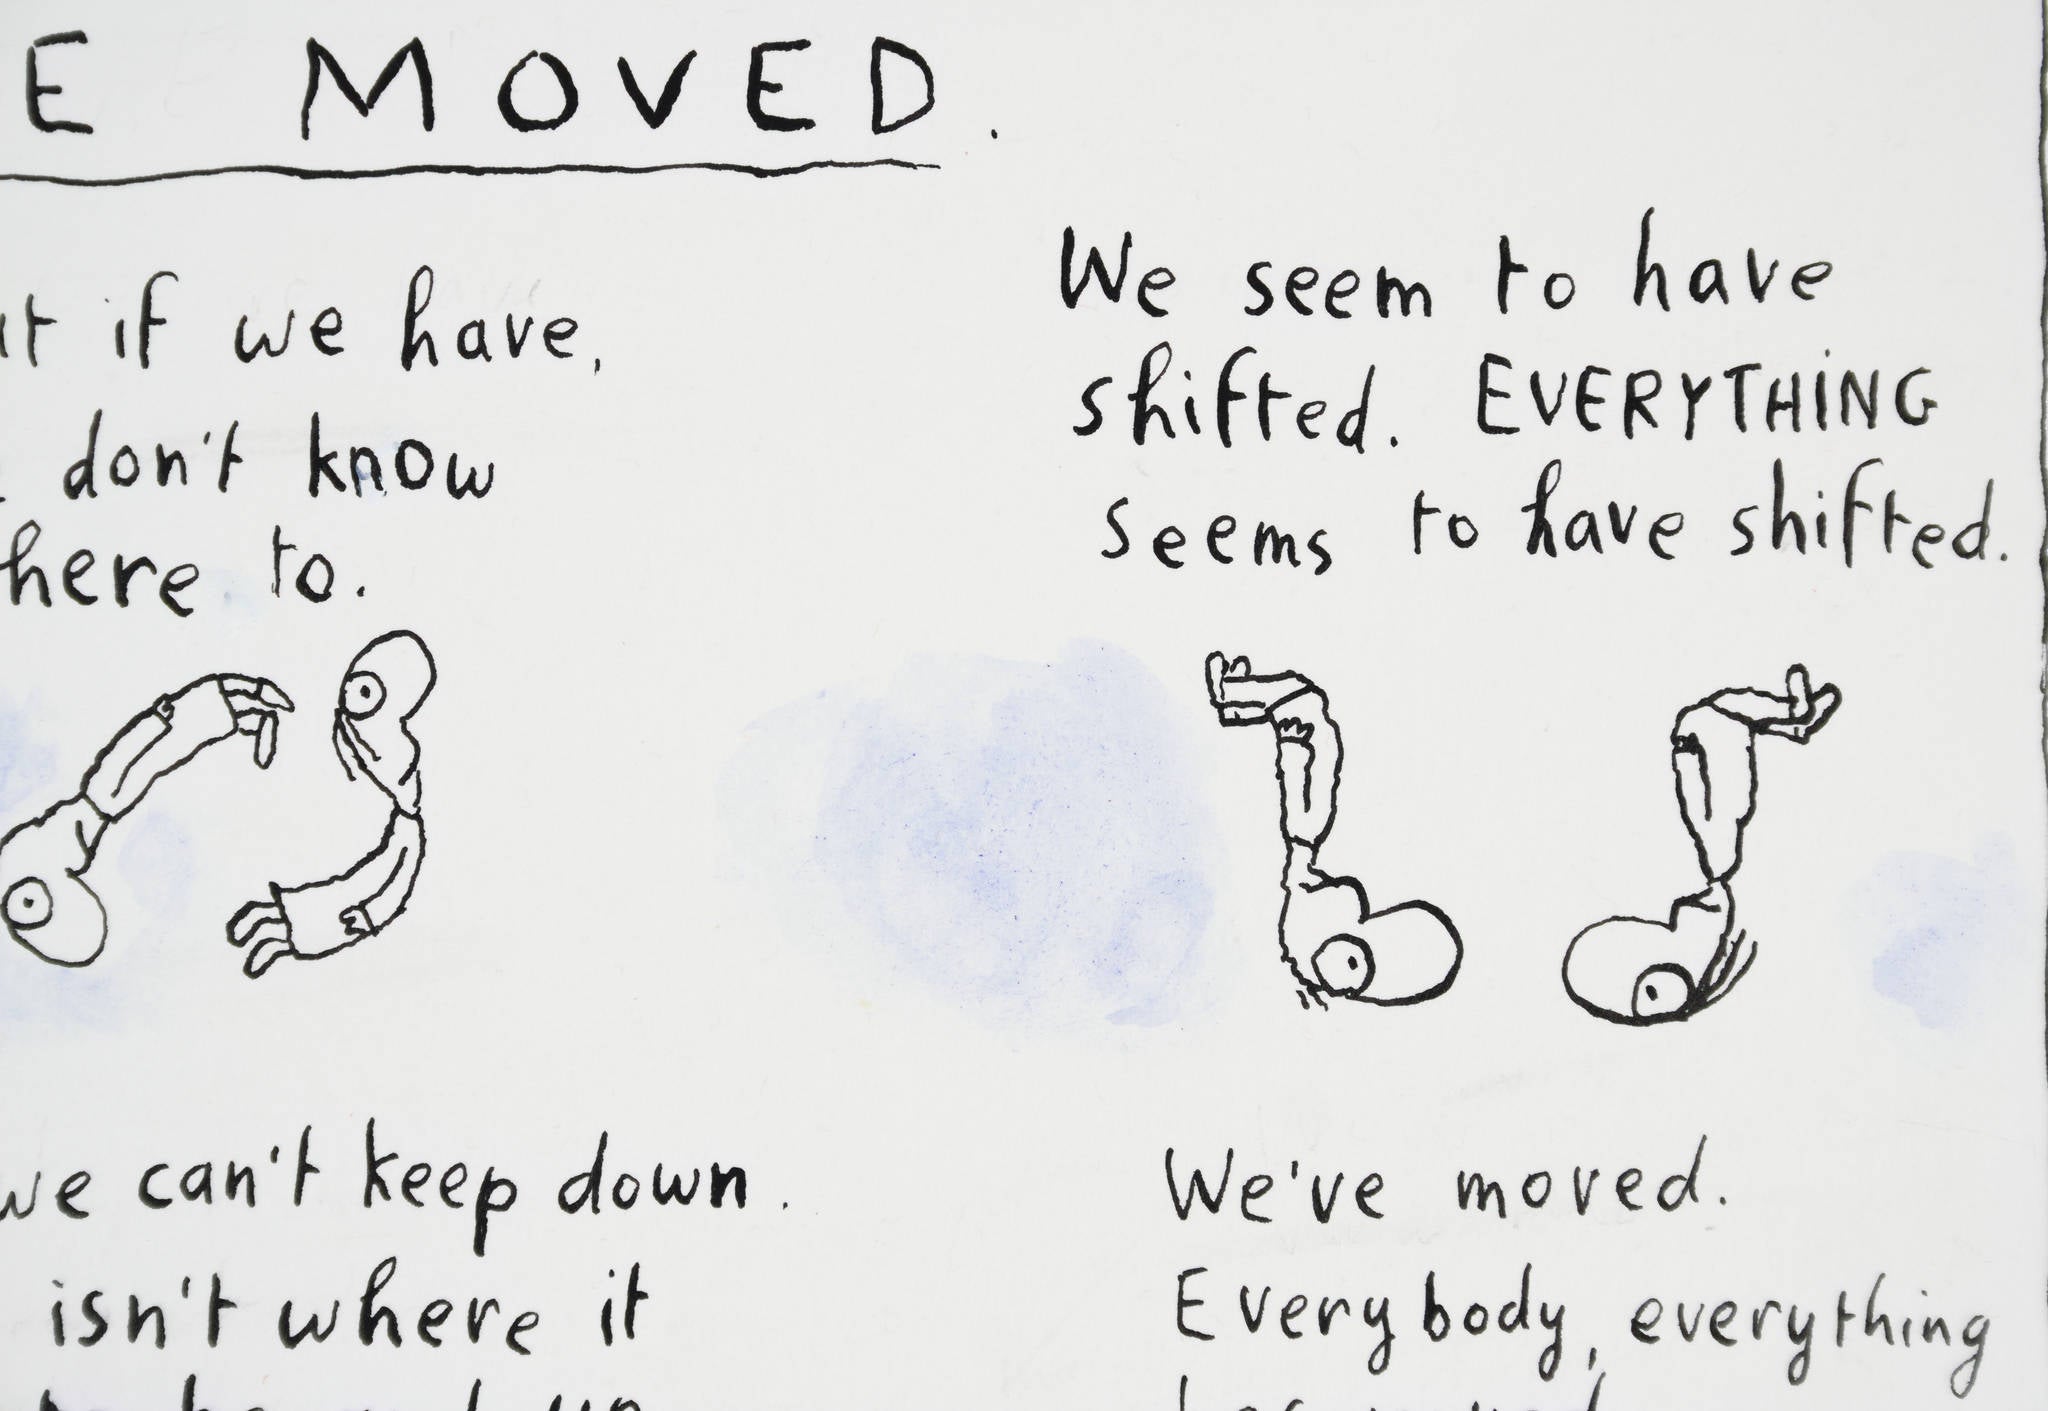 E MOVED.
if we have,
don't know
here to.
We seem to have
shifted. EVERYTHING
seems to have shifted.
we can't keep down.
isn't where it
We've moved.
Everybody, everything